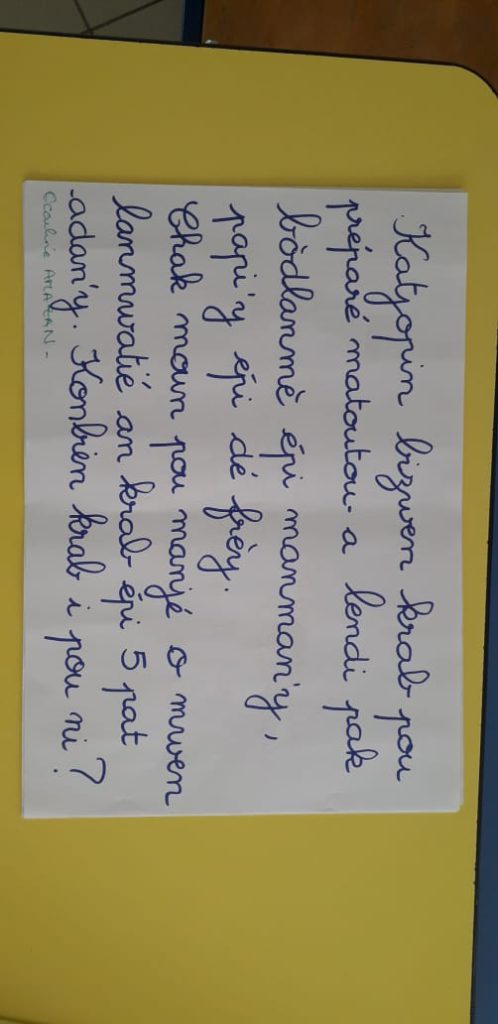 Katjopin bizwen krab pou
préparé matoutou-a lendi pak
bòdlanmè épi manman'y,
papi'y épi dé frèy.
Chak moun pou manjé o mwen
lanmwatié an krab épi 5 pat
adan'y. Konbien krab i pou ni ?